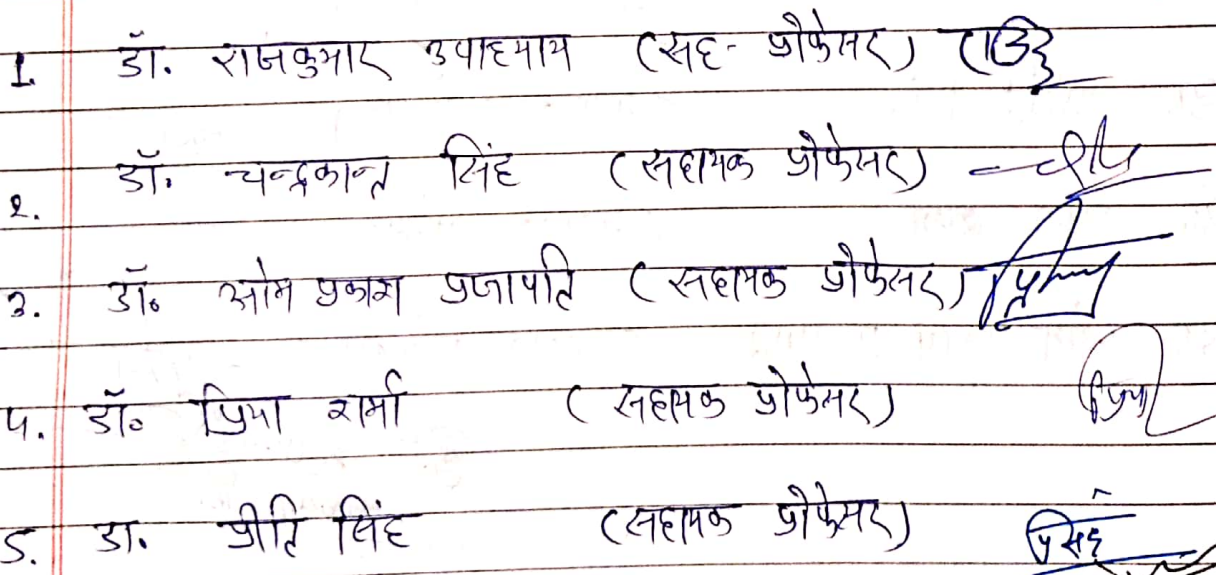 1. डॉ. राजकुमार उपाध्याय (सह- प्रोफेसर)
2. डॉ. चन्द्रकान्त सिंह (सहायक प्रोफेसर)
3. डॉ० ओम प्रकाश प्रजापति (सहायक प्रोफेसर)
4. डॉ० प्रिया शर्मा (सहायक प्रोफेसर) प्रिया
5. डा. प्रीति सिंह (सहायक प्रोफेसर)